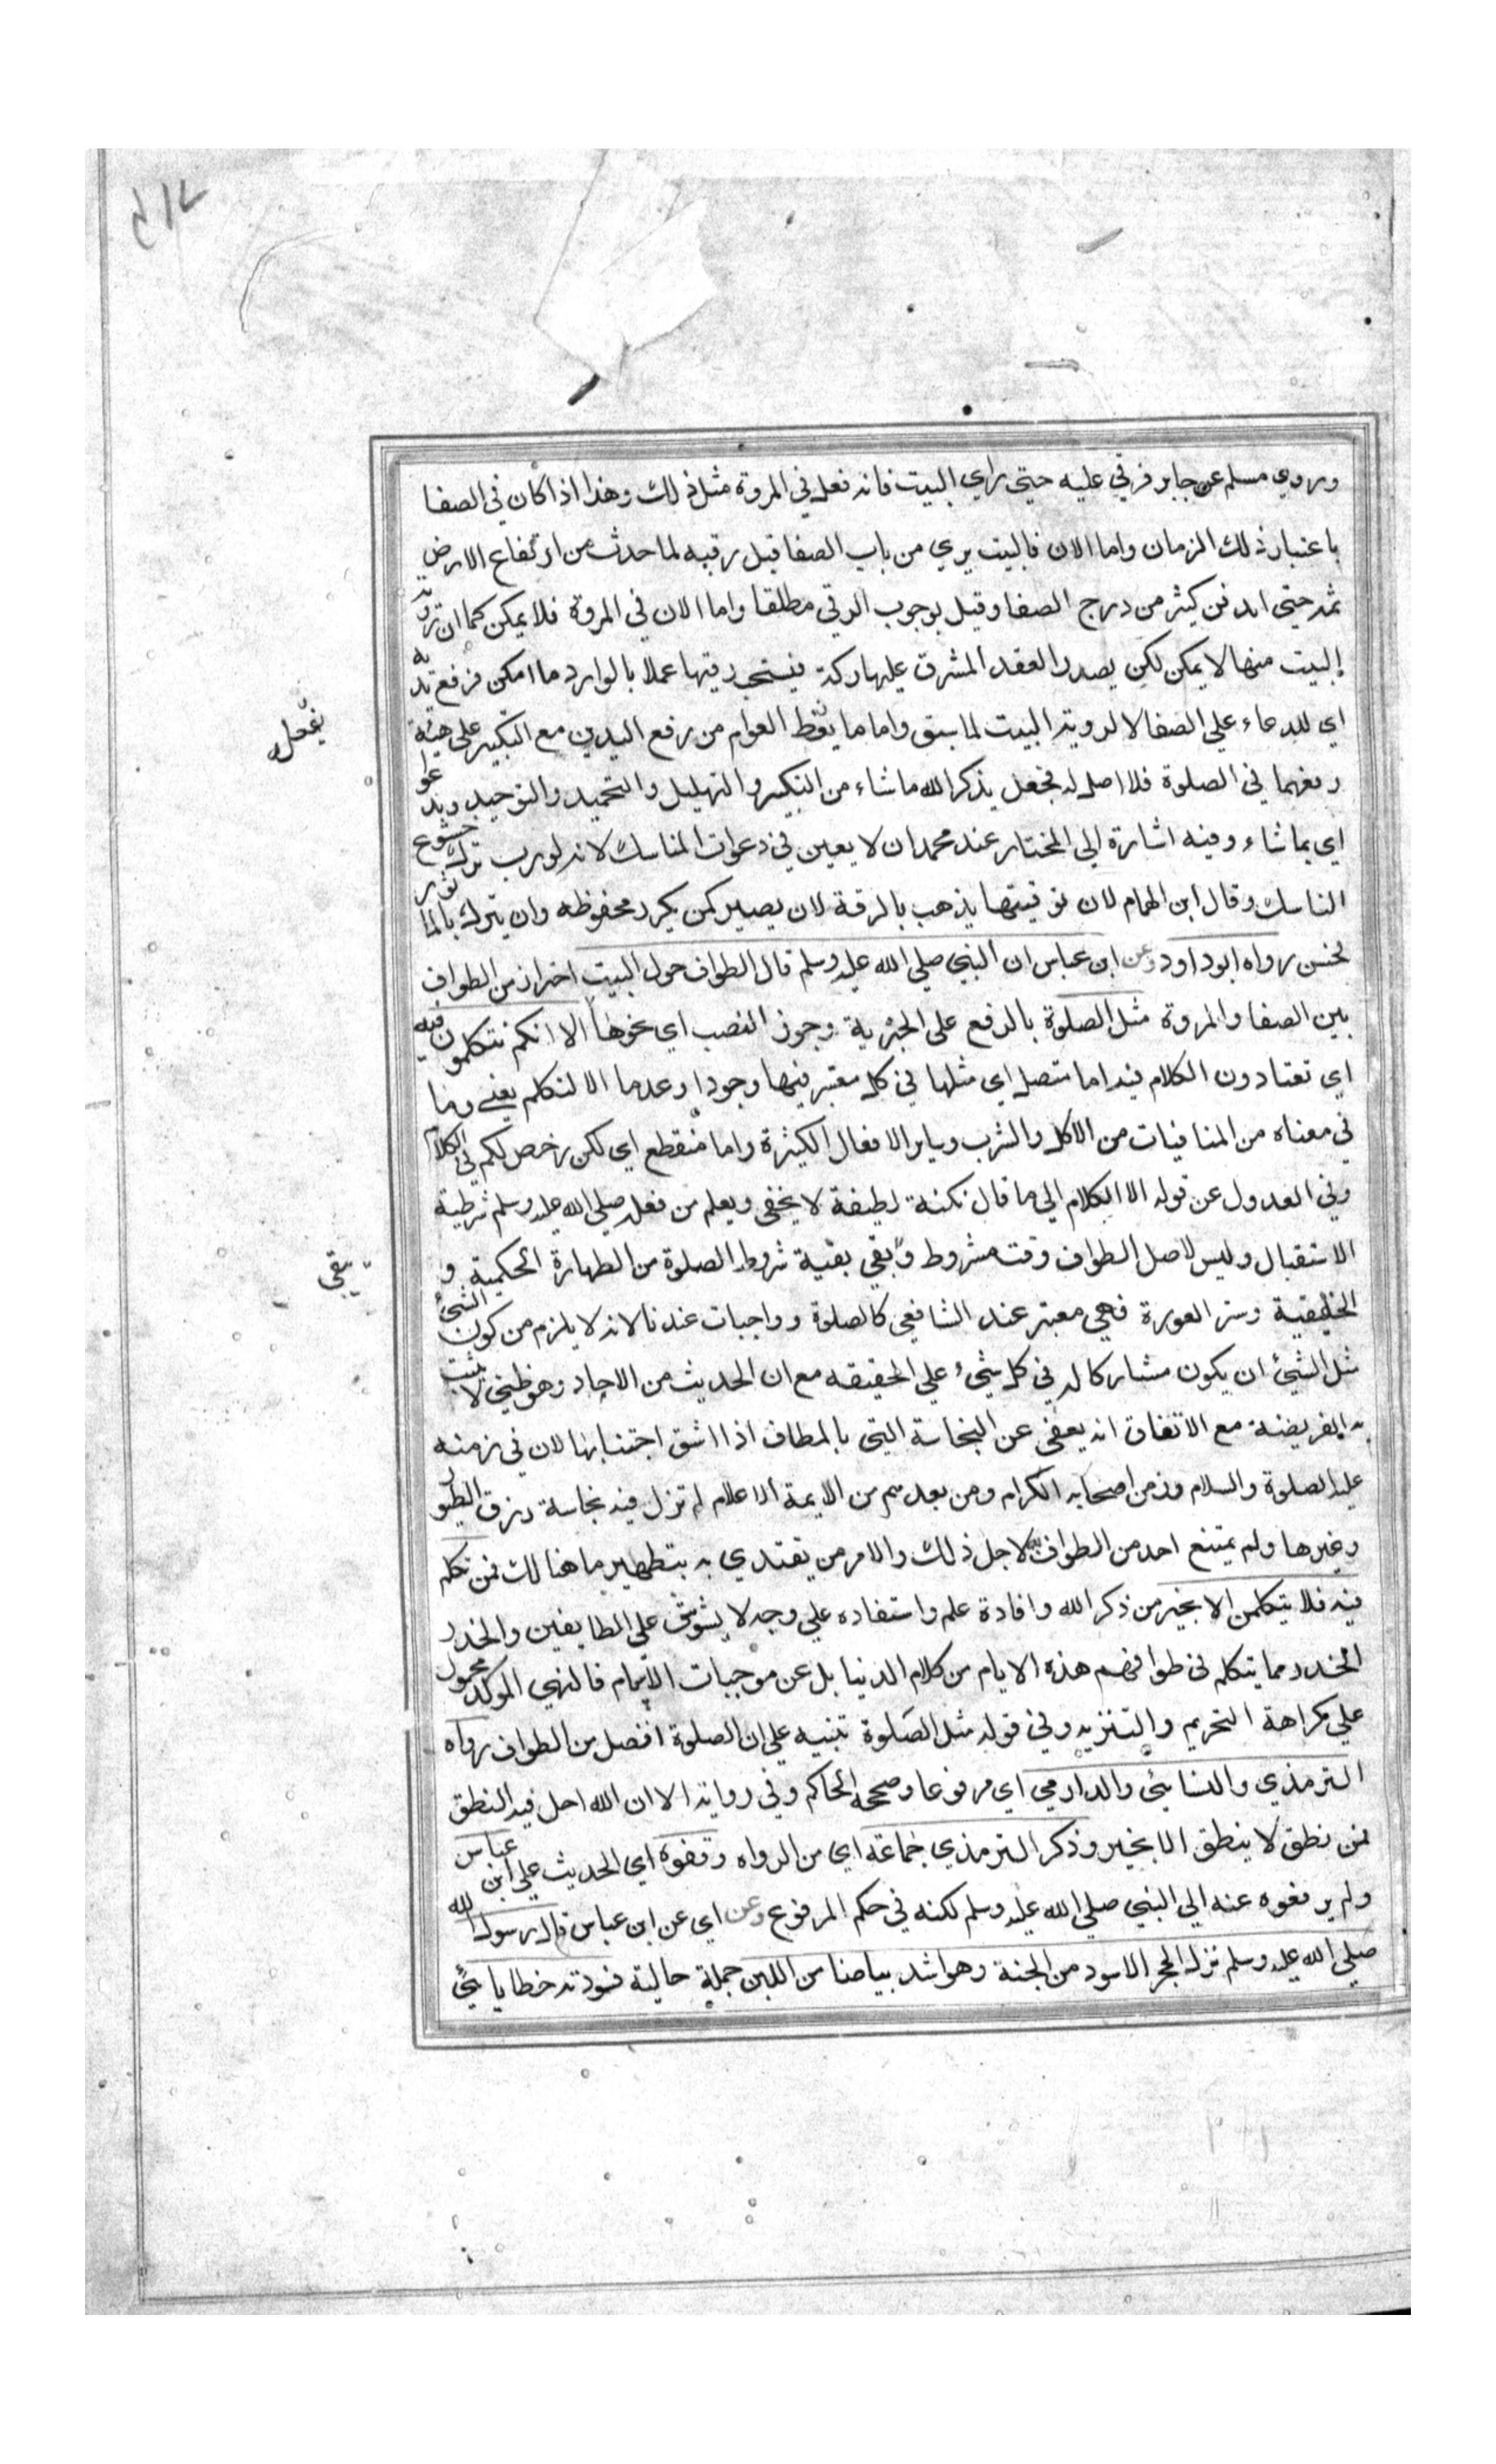 وروي مسلم عن جابر فرقي عليه حتى راي البيت فانه فعل في المروة مثل ذلك وهذا اذا كان في الصفا
باعتبار ذلك الزمان واما الان فالبيت يري من باب الصفا قبل رقيه لما حدث من ارتفاع الارض
ثمه حتى اندفن كثير من درج الصفا وقيل بوجوب الرقي مطلقا واما الان في المروة فلا يمكن كما ان رؤية
البيت منها لا يمكن لكن يصدر العقد المشرف عليها دكة فيستحب رقيتها عملا بالوارد ما امكن فرفع يديه
اي للدعاء علي الصفا لا لروية البيت لما سبق واما ما يفعله العوام من رفع اليدين مع التكبير على هيئة
رفعهما في الصلوة فلا اصل له فجعل يذكر الله ما شاء من التكبير والتهليل والتحميد والتوحيد ويدعو
اي بما شاء وفيه اشارة الي المختار عند محمد ان لا يعين في دعوات المناسك لانه يورث ترك خشوع
الناسك وقال ابن الهمام لان توقيتها يذهب بالرقة لان يصير كمن يكرر محفوظه وان يتبرك بالماثور
فحسن رواه ابو داود وعن ابن عباس ان النبي صلي الله عليه وسلم قال الطواف حول البيت احتراز من الطواف
بين الصفا والمروة مثل الصلوة بالرفع على الخبرية وجوز النصب اي نحوها الا انكم تتكلمون فيه
اي تعتادون الكلام فيه اما متصل اي مثلها في كل معتبر فيها وجودا وعدما الا التكلم يعني وما
في معناه من المنافيات من الاكل والشرب وساير الافعال الكثيرة واما منقطع اي لكن رخص لكم في الكلام
وفي العدول عن قوله الا الكلام الي ما قال نكتة لطيفة لا يخفى ويعلم من فعله صلي الله عليه وسلم شرطية
الاستقبال وليس لاصل الطواف وقت مشروط وبقي بقية شروط الصلوة من الطهارة الحكمية و
الحقيقية وستر العورة فهي معتبر عند الشافعي كالصلوة وواجبات عندنا لانه لا يلزم من كون الشئ
مثل الشئ ان يكون مشاركا له في كل شئ علي الحقيقه مع ان الحديث من الاحاد وهو ظني لا يثبت
به الفريضة مع الاتفاق انه يعفى عن النجاسة التي بالمطاف اذا اشق اجتنابها لان في زمنه
عليه الصلوة والسلام وزمن اصحابه الكرام ومن بعدهم من الايمة الاعلام لم تزل فيه نجاسة ذرق الطيور
وغيرها ولم يمتنع احد من الطواف به لاجل ذلك والامر من يقتدي به بتطهير ما هنالك فمن تكلم
فيه فلا يتكلمن الا بخير من ذكر الله وافادة علم واستفاده علي وجه لا يشوش على الطايفين والحذر
الحذر مما يتكلم في طوافهم هذه الايام من كلام الدنيا بل عن موجبات الاثام فالنهي الموكد محمول
علي كراهة التحريم والتنزيه وفي قوله مثل الصلوة تنبيه علي ان الصلوة افضل من الطواف رواه
الترمذي والنسائي والدارمي اي مرفوعا وصححه الحاكم وفي رواية الا ان الله احل فيه النطق
فمن نطق لا ينطق الا بخير وذكر الترمذي جماعة اي من الرواه وقفوه اي الحديث علي ابن عباس
ولم يرفعوه عنه الي النبي صلي الله عليه وسلم لكنه في حكم المرفوع وعن اي عن ابن عباس قال رسول الله
صلي الله عليه وسلم نزل الحجر الاسود من الجنة وهو اشد بياضا من اللبن جملة حالية فسودته خطايا بني
يفعله
يبقى